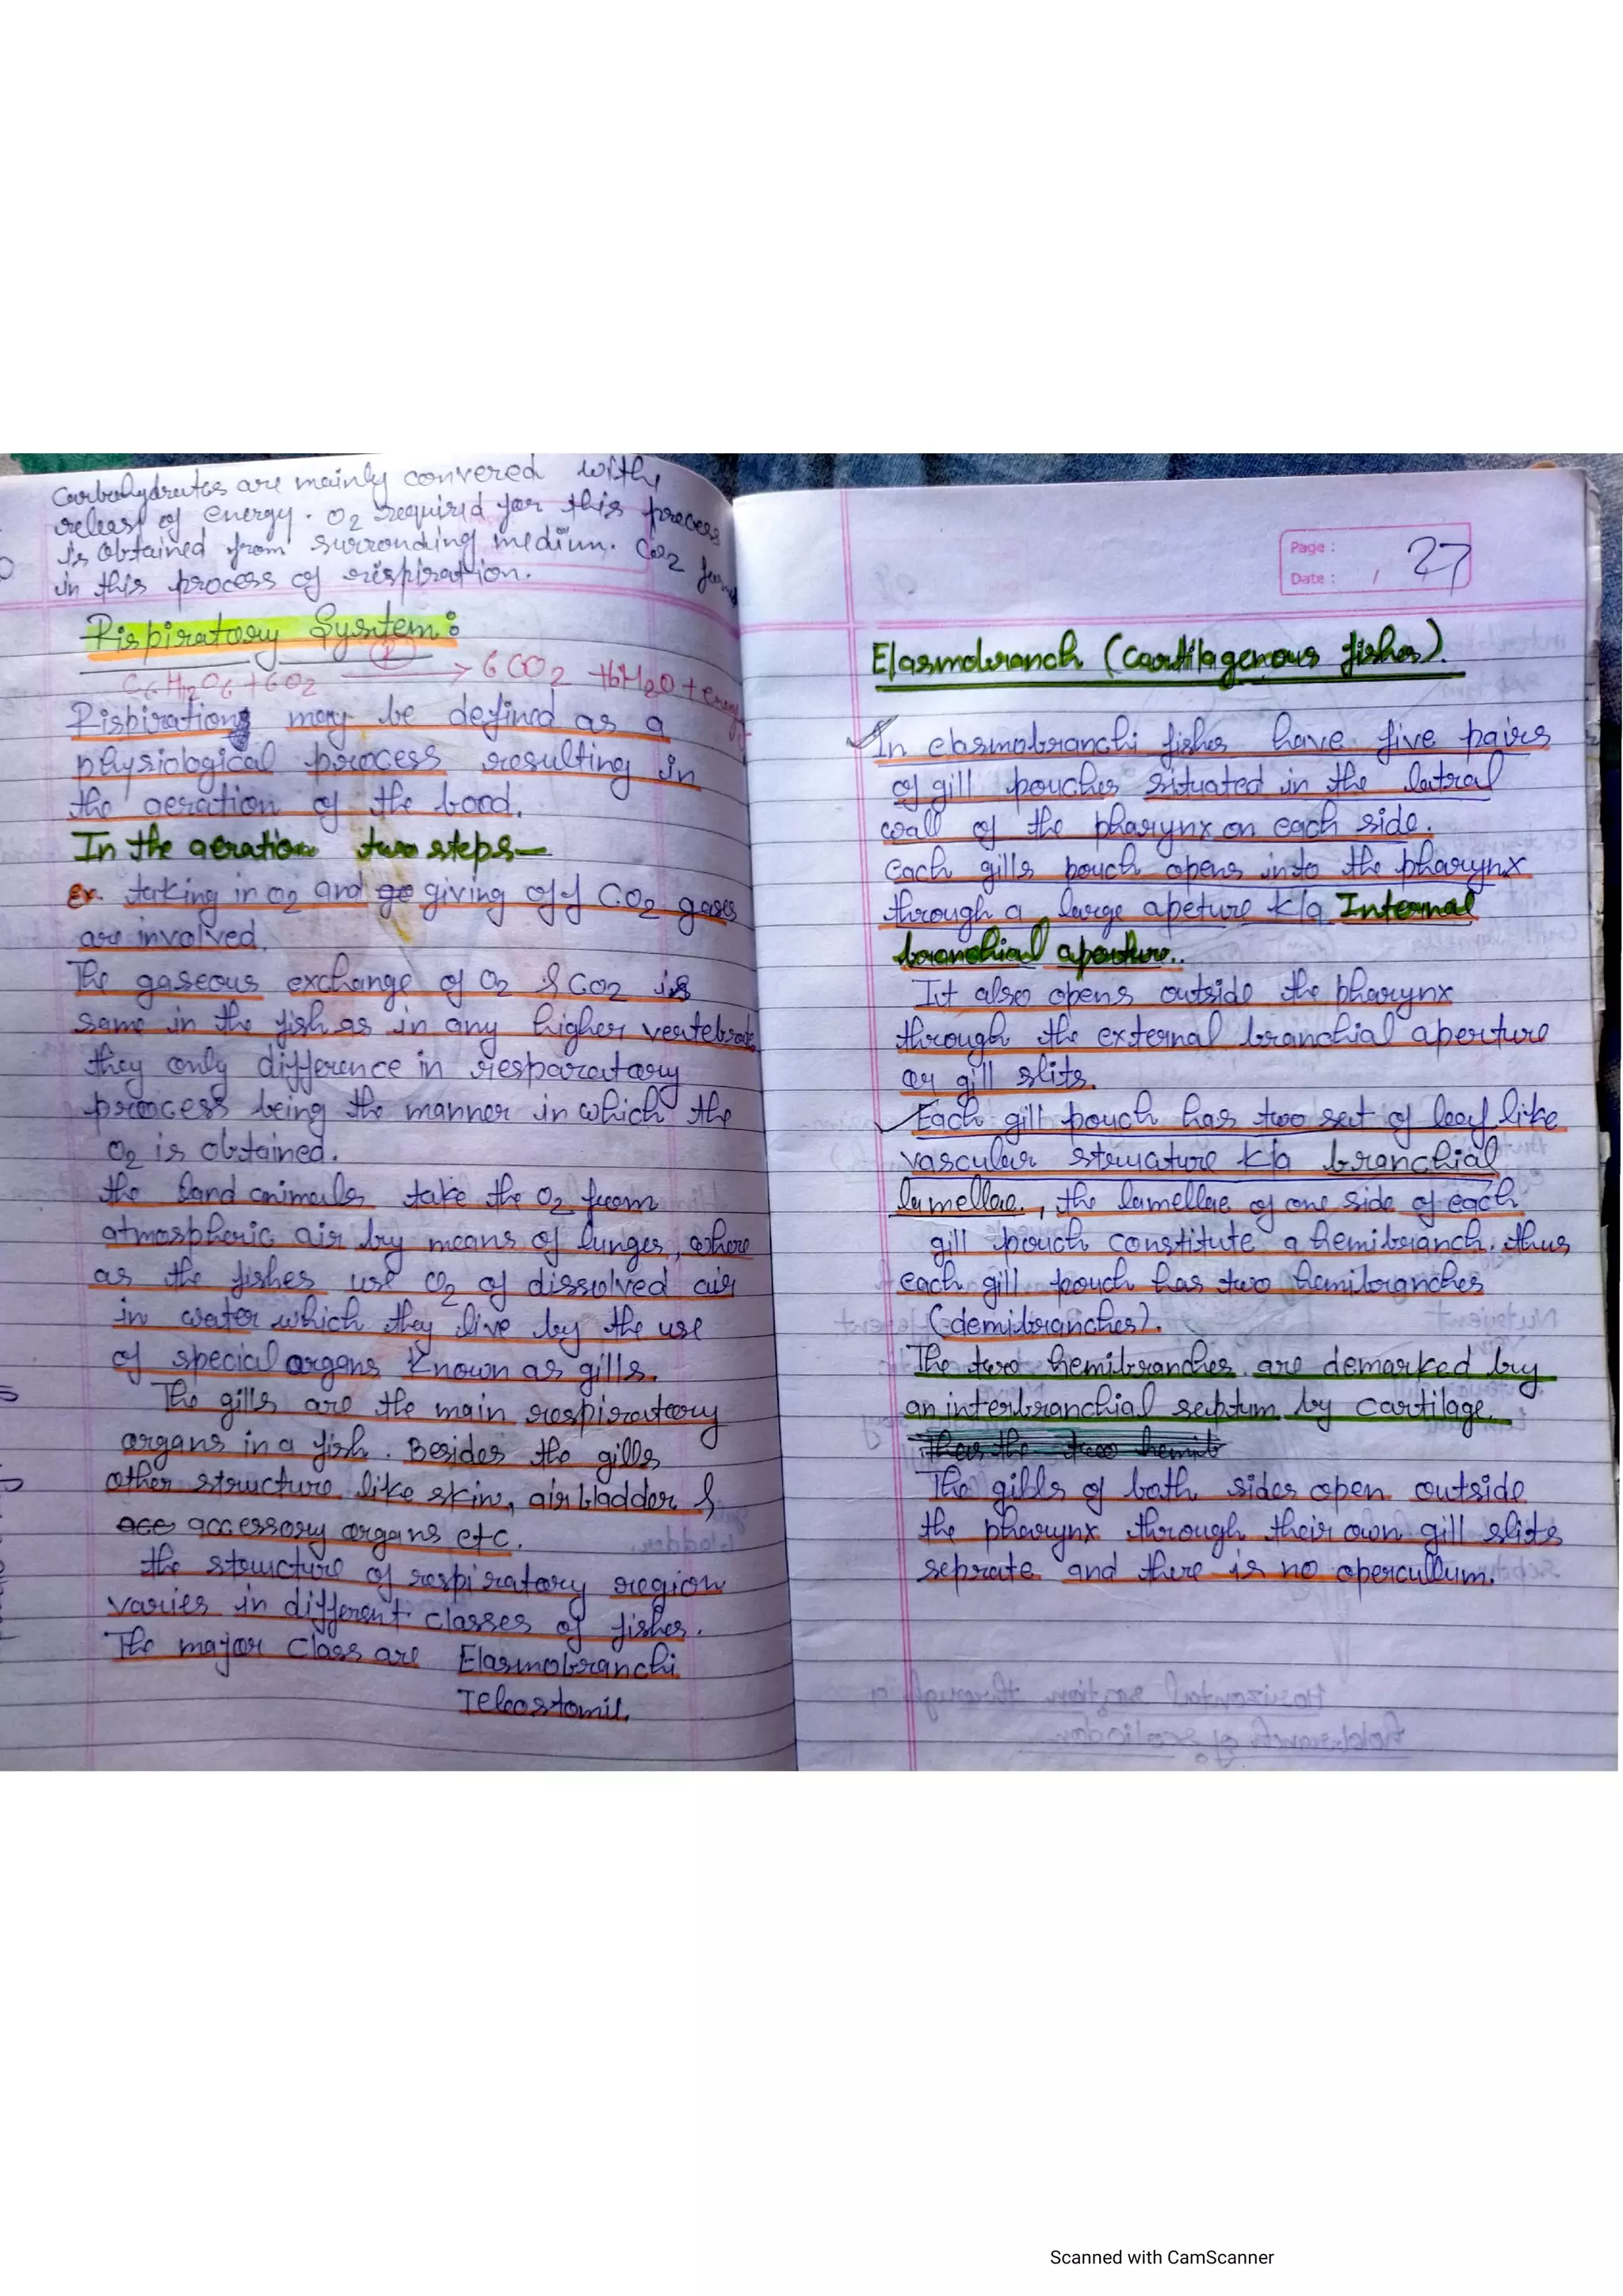 Carbohydrates are mainly convered with
releas of energy. O2 required for this process
is obtained from surrounding medium. Co2
in this process of respiration.
Rispiratory System:
C6H12O6+6O2 → 6CO2 +6H2O + energy
Rispiration may be defined as a
physiological process resulting in
the aeration of the bood.
In the aeration two steps—
Ex. taking in O2 and ge giving off CO2 gases
are involved.
The gaseous exchange of O2 & CO2 is
same in the fish as in any higher vertebrate
they only difference in resparatory
process being the manner in which the
O2 is obtained.
the land animals take the O2 from
atmospheric air by means of lunges, where
as the fishes use O2 of dissolved air
in water which they live by the use
of special organs known as gills.
The gills are the main respiratory
organs in a fish. Besides the gills
other structure like skin, air bladder &
ace accessory organs etc.
the structure of respiratory region
varies in different classes of fishes.
The major class are Elasmobranchi
Teleostomil.
Page : 27
Date : /
Elasmobranch (cartilagenous fishes).
In elasmobranchi fishes have five pairs
of gill pouches situated in the latral
wall of the pharynx on each side.
Each gills pouch opens into the pharynx
through a large apeture k/a Internal
branchial aperture..
It also opens outside the pharynx
through the external branchial aperture
or gill slits.
Each gill pouch has two set of leaf like
vascular structure k/a branchial
lamellae, the lamellae of one side of each
gill pouch constitute a hemibranch. thus
each gill pouch has two hemibranches
(demibranches).
The two hemibranches are demarked by
an interbranchial septum by cartilage.
Thus the two hemib
The gills of both sides open outside
the pharynx through their own gill slits
seprate and there is no operculum.
Scanned with CamScanner